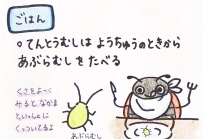 ごはん
○てんとうむしは ようちゅうのときから
あぶらむしをたべる
くさをよーく
みると、なかま
といっしょに
くっついてるよ
あぶらむし